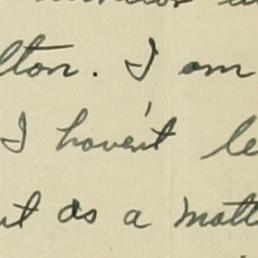 lton. I am
I haven't le
ut as a matt